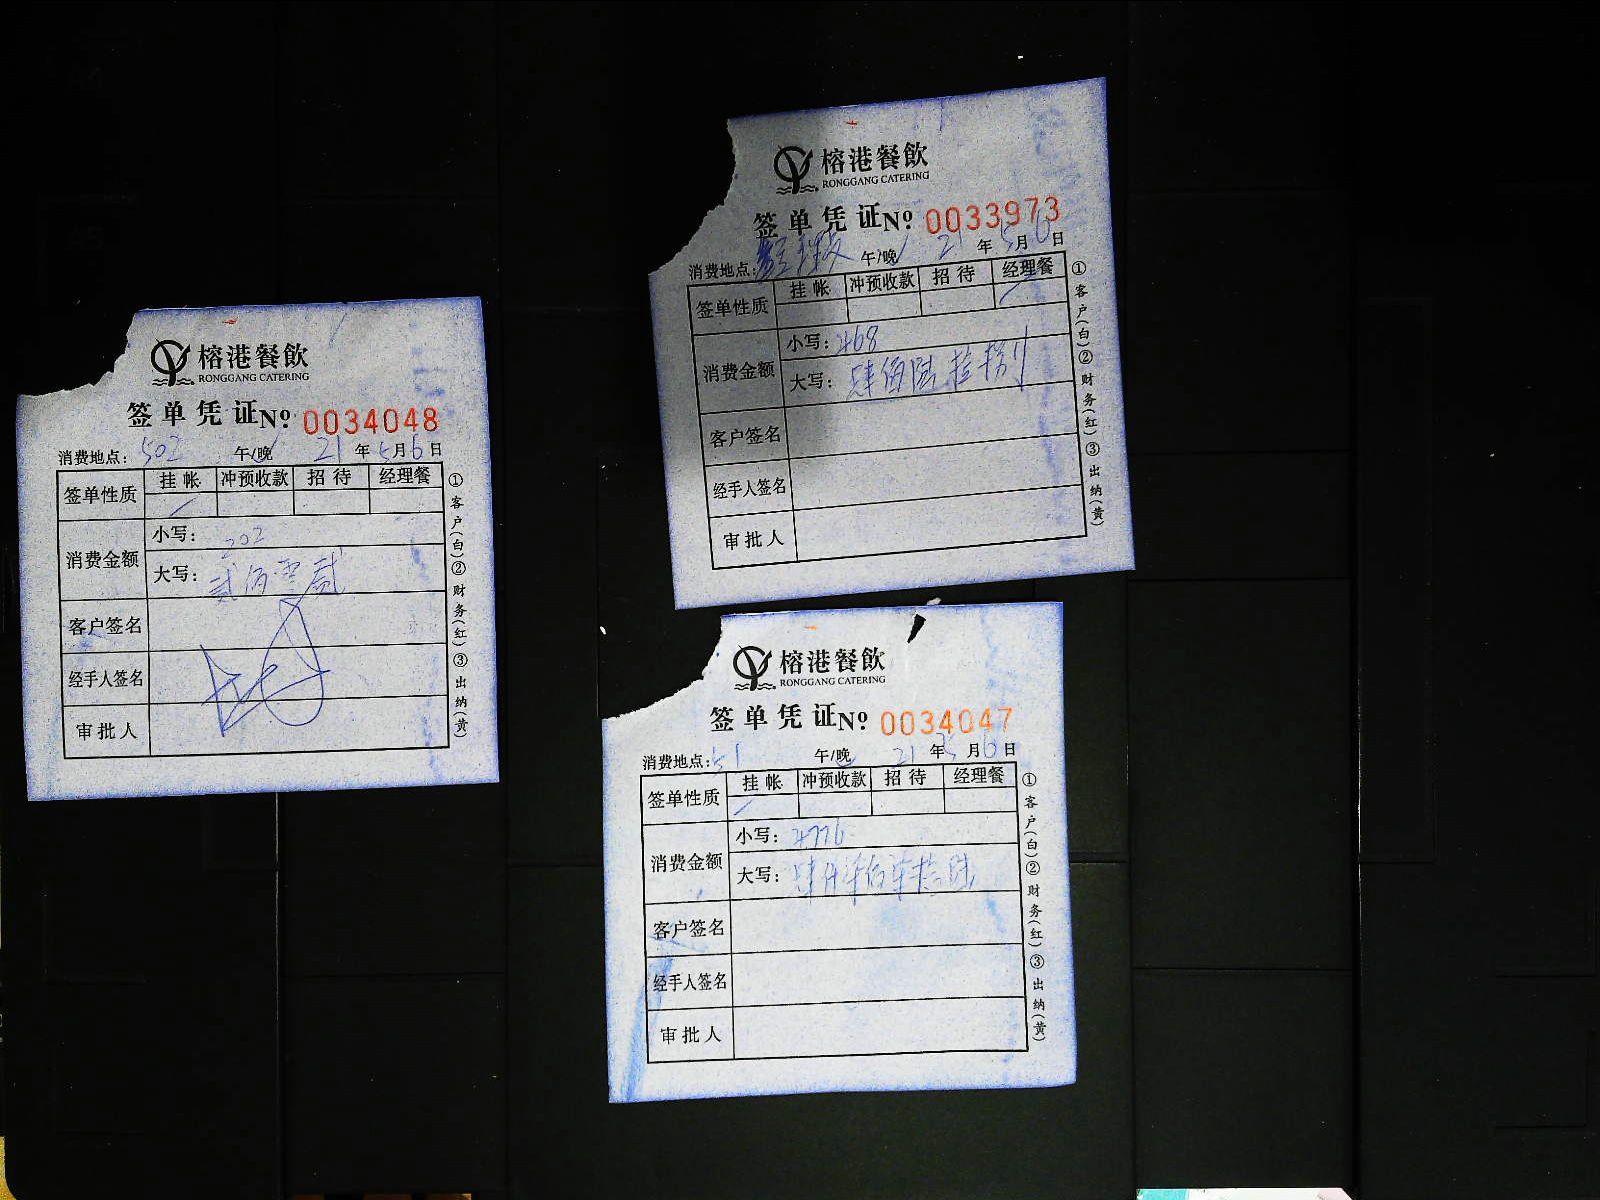 榕港餐飲
RONGGANG CATERING
签单凭证 Nº 0034048
消费地点: 502 午/晚 21 年 5 月 6 日
签单性质 挂帐 冲预收款 招待 经理餐
消费金额 小写: 202
大写: 贰佰零贰
客户签名
经手人签名
审批人
①客户(白)②财务(红)③出纳(黄)
榕港餐飲
RONGGANG CATERING
签单凭证 Nº 0033973
消费地点: 午/晚 21 年 5 月 6 日
签单性质 挂帐 冲预收款 招待 经理餐
消费金额 小写: 468
大写: 肆佰陆拾捌
客户签名
经手人签名
审批人
①客户(白)②财务(红)③出纳(黄)
榕港餐飲
RONGGANG CATERING
签单凭证 Nº 0034047
消费地点: 午/晚 21 年 5 月 6 日
签单性质 挂帐 冲预收款 招待 经理餐
消费金额 小写: 4776
大写: 肆仟柒佰柒拾陆
客户签名
经手人签名
审批人
①客户(白)②财务(红)③出纳(黄)